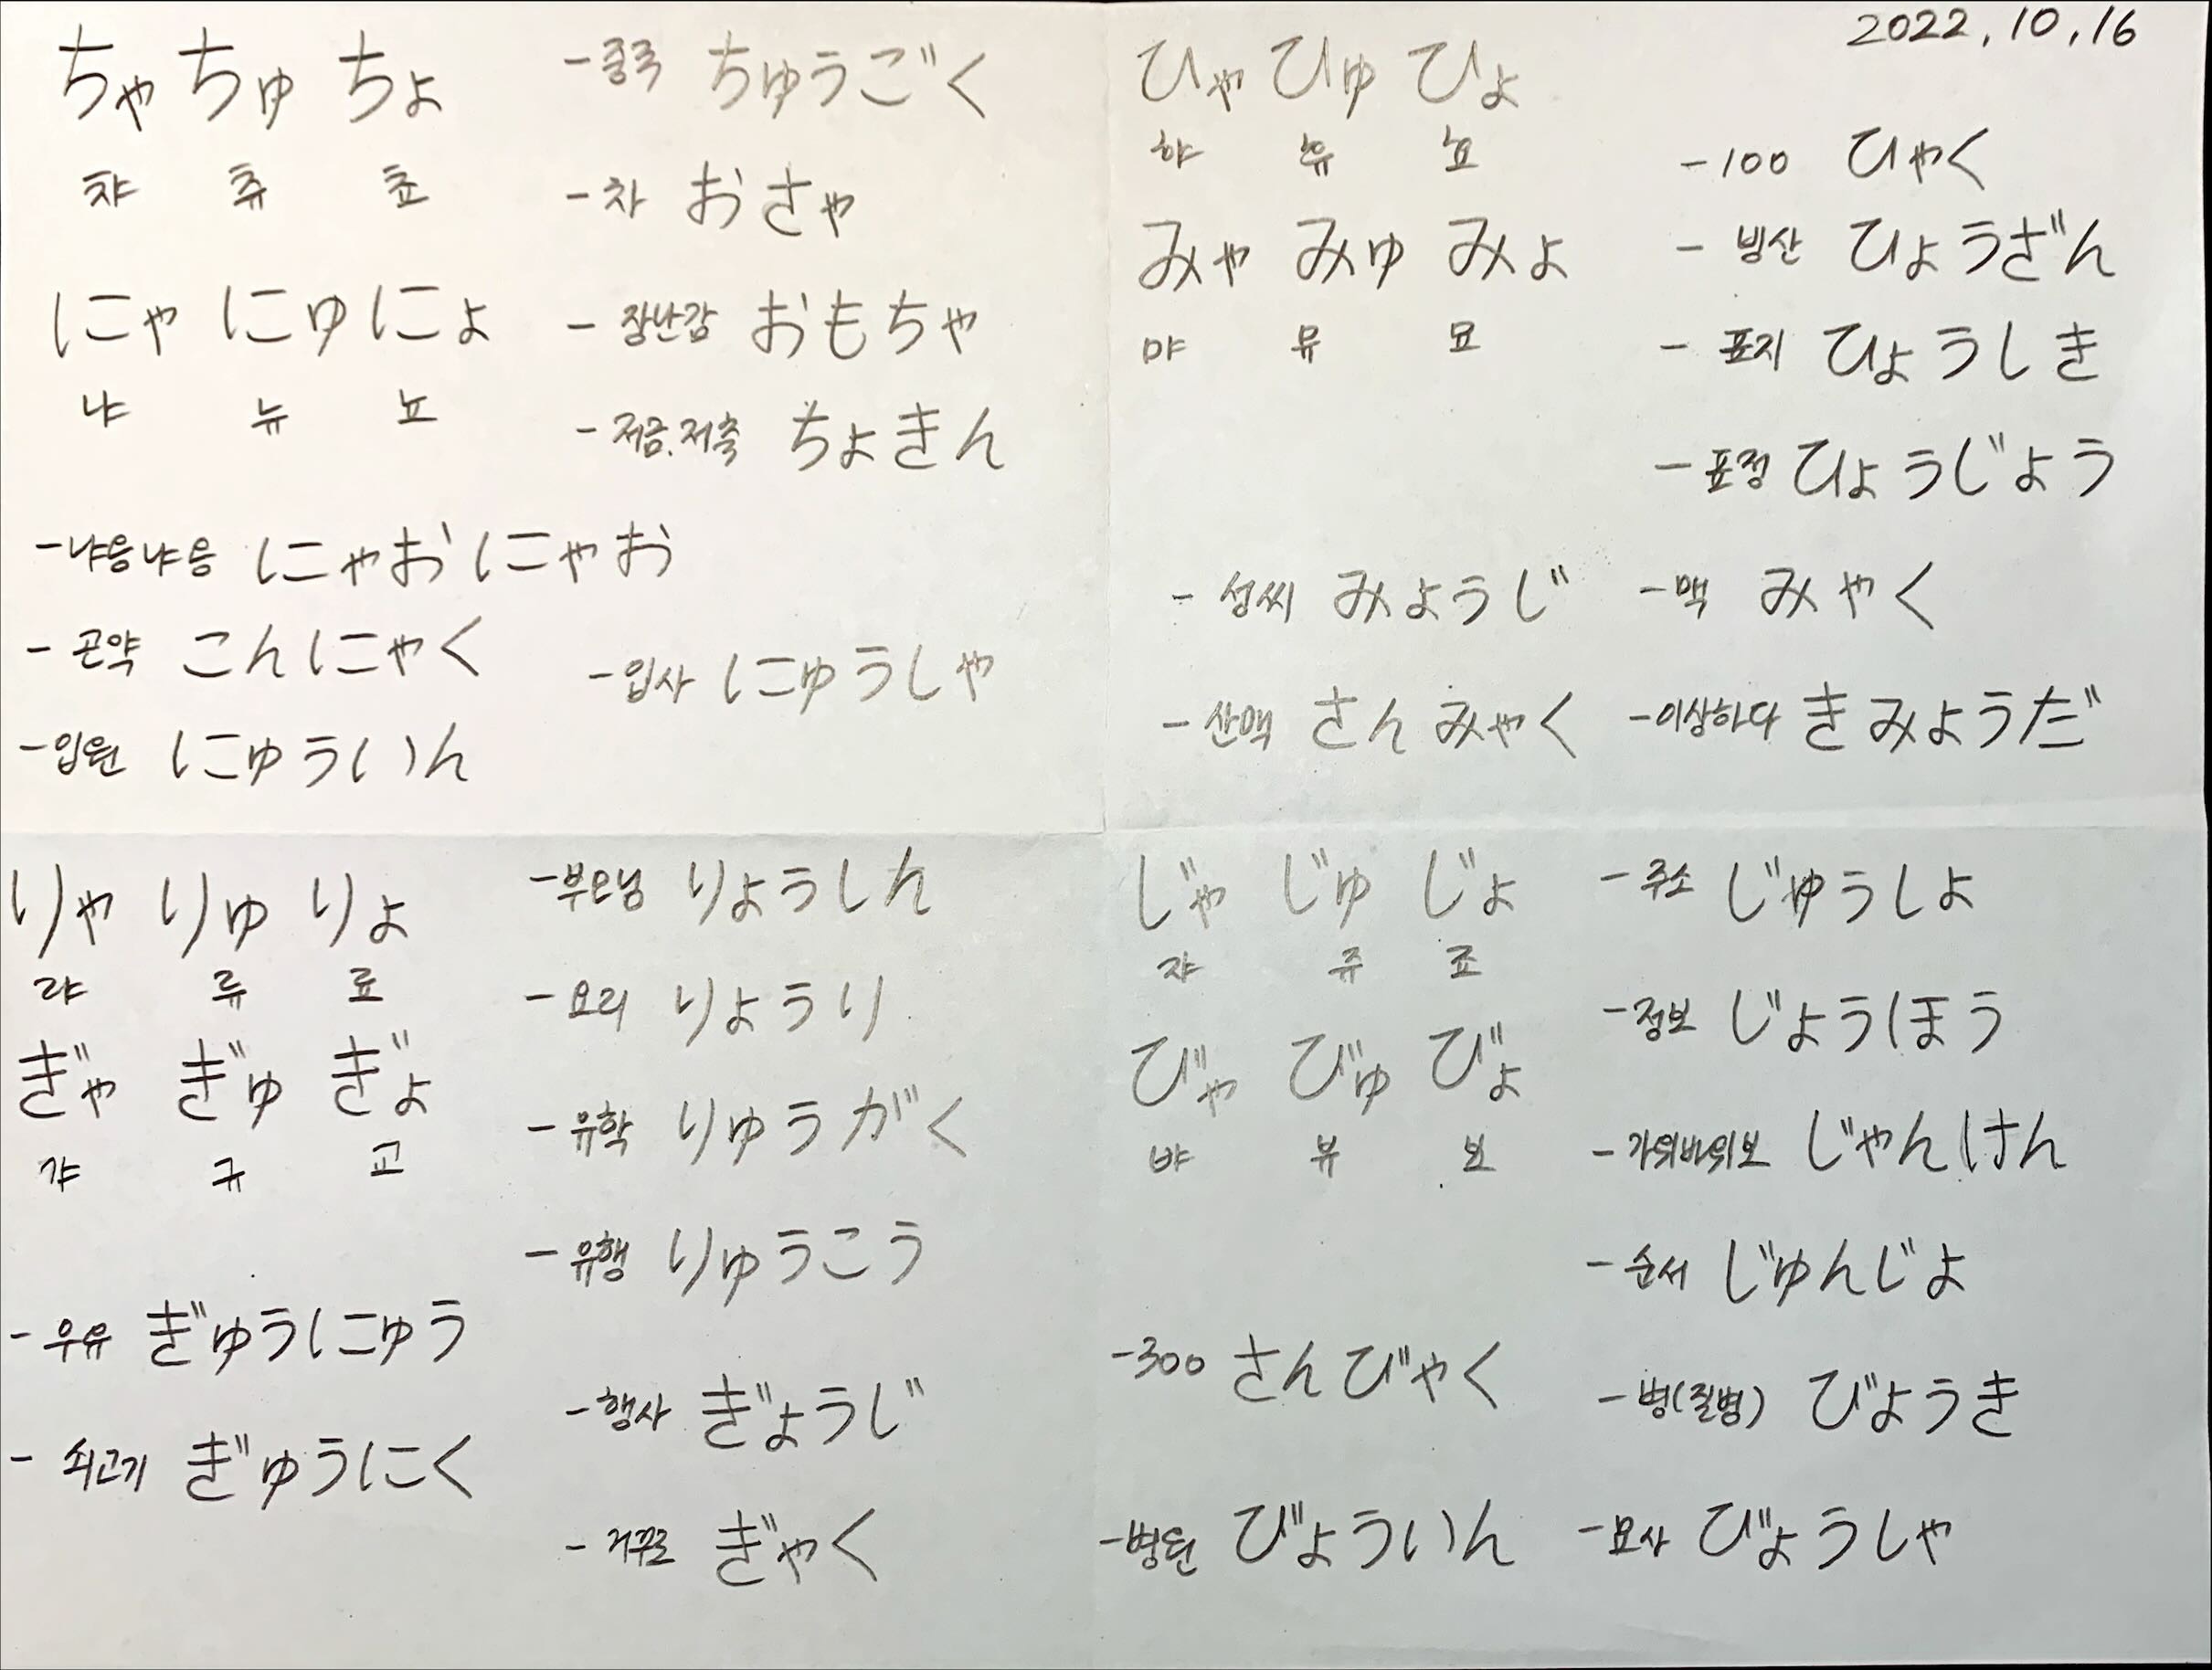 2022.10.16
ちゃ ちゅ ちょ
챠 츄 쵸
にゃ にゅ にょ
냐 뉴 뇨
-중국 ちゅうごく
-차 おさゃ
-장난감 おもちゃ
-저금.저축 ちょきん
-냐옹냐옹 にゃおにゃお
-곤약 こんにゃく
-입원 にゅういん
-입사 にゅうしゃ
ひゃ ひゅ ひょ
햐 휴 효
みゃ みゅ みょ
먀 뮤 묘
-100 ひゃく
-빙산 ひょうざん
-표지 ひょうしき
-표정 ひょうじょう
-성씨 みょうじ
-맥 みゃく
-산맥 さんみゃく
-이상하다 きみょうだ
りゃ りゅ りょ
랴 류 료
ぎゃ ぎゅ ぎょ
갸 규 교
-부모님 りょうしん
-요리 りょうり
-유학 りゅうがく
-유행 りゅうこう
-우유 ぎゅうにゅう
-쇠고기 ぎゅうにく
-행사 ぎょうじ
-거꾸로 ぎゃく
じゃ じゅ じょ
쟈 쥬 죠
びゃ びゅ びょ
뱌 뷰 뵤
-주소 じゅうしょ
-정보 じょうほう
-가위바위보 じゃんけん
-순서 じゅんじょ
-300 さんびゃく
-병(질병) びょうき
-병원 びょういん
-묘사 びょうしゃ